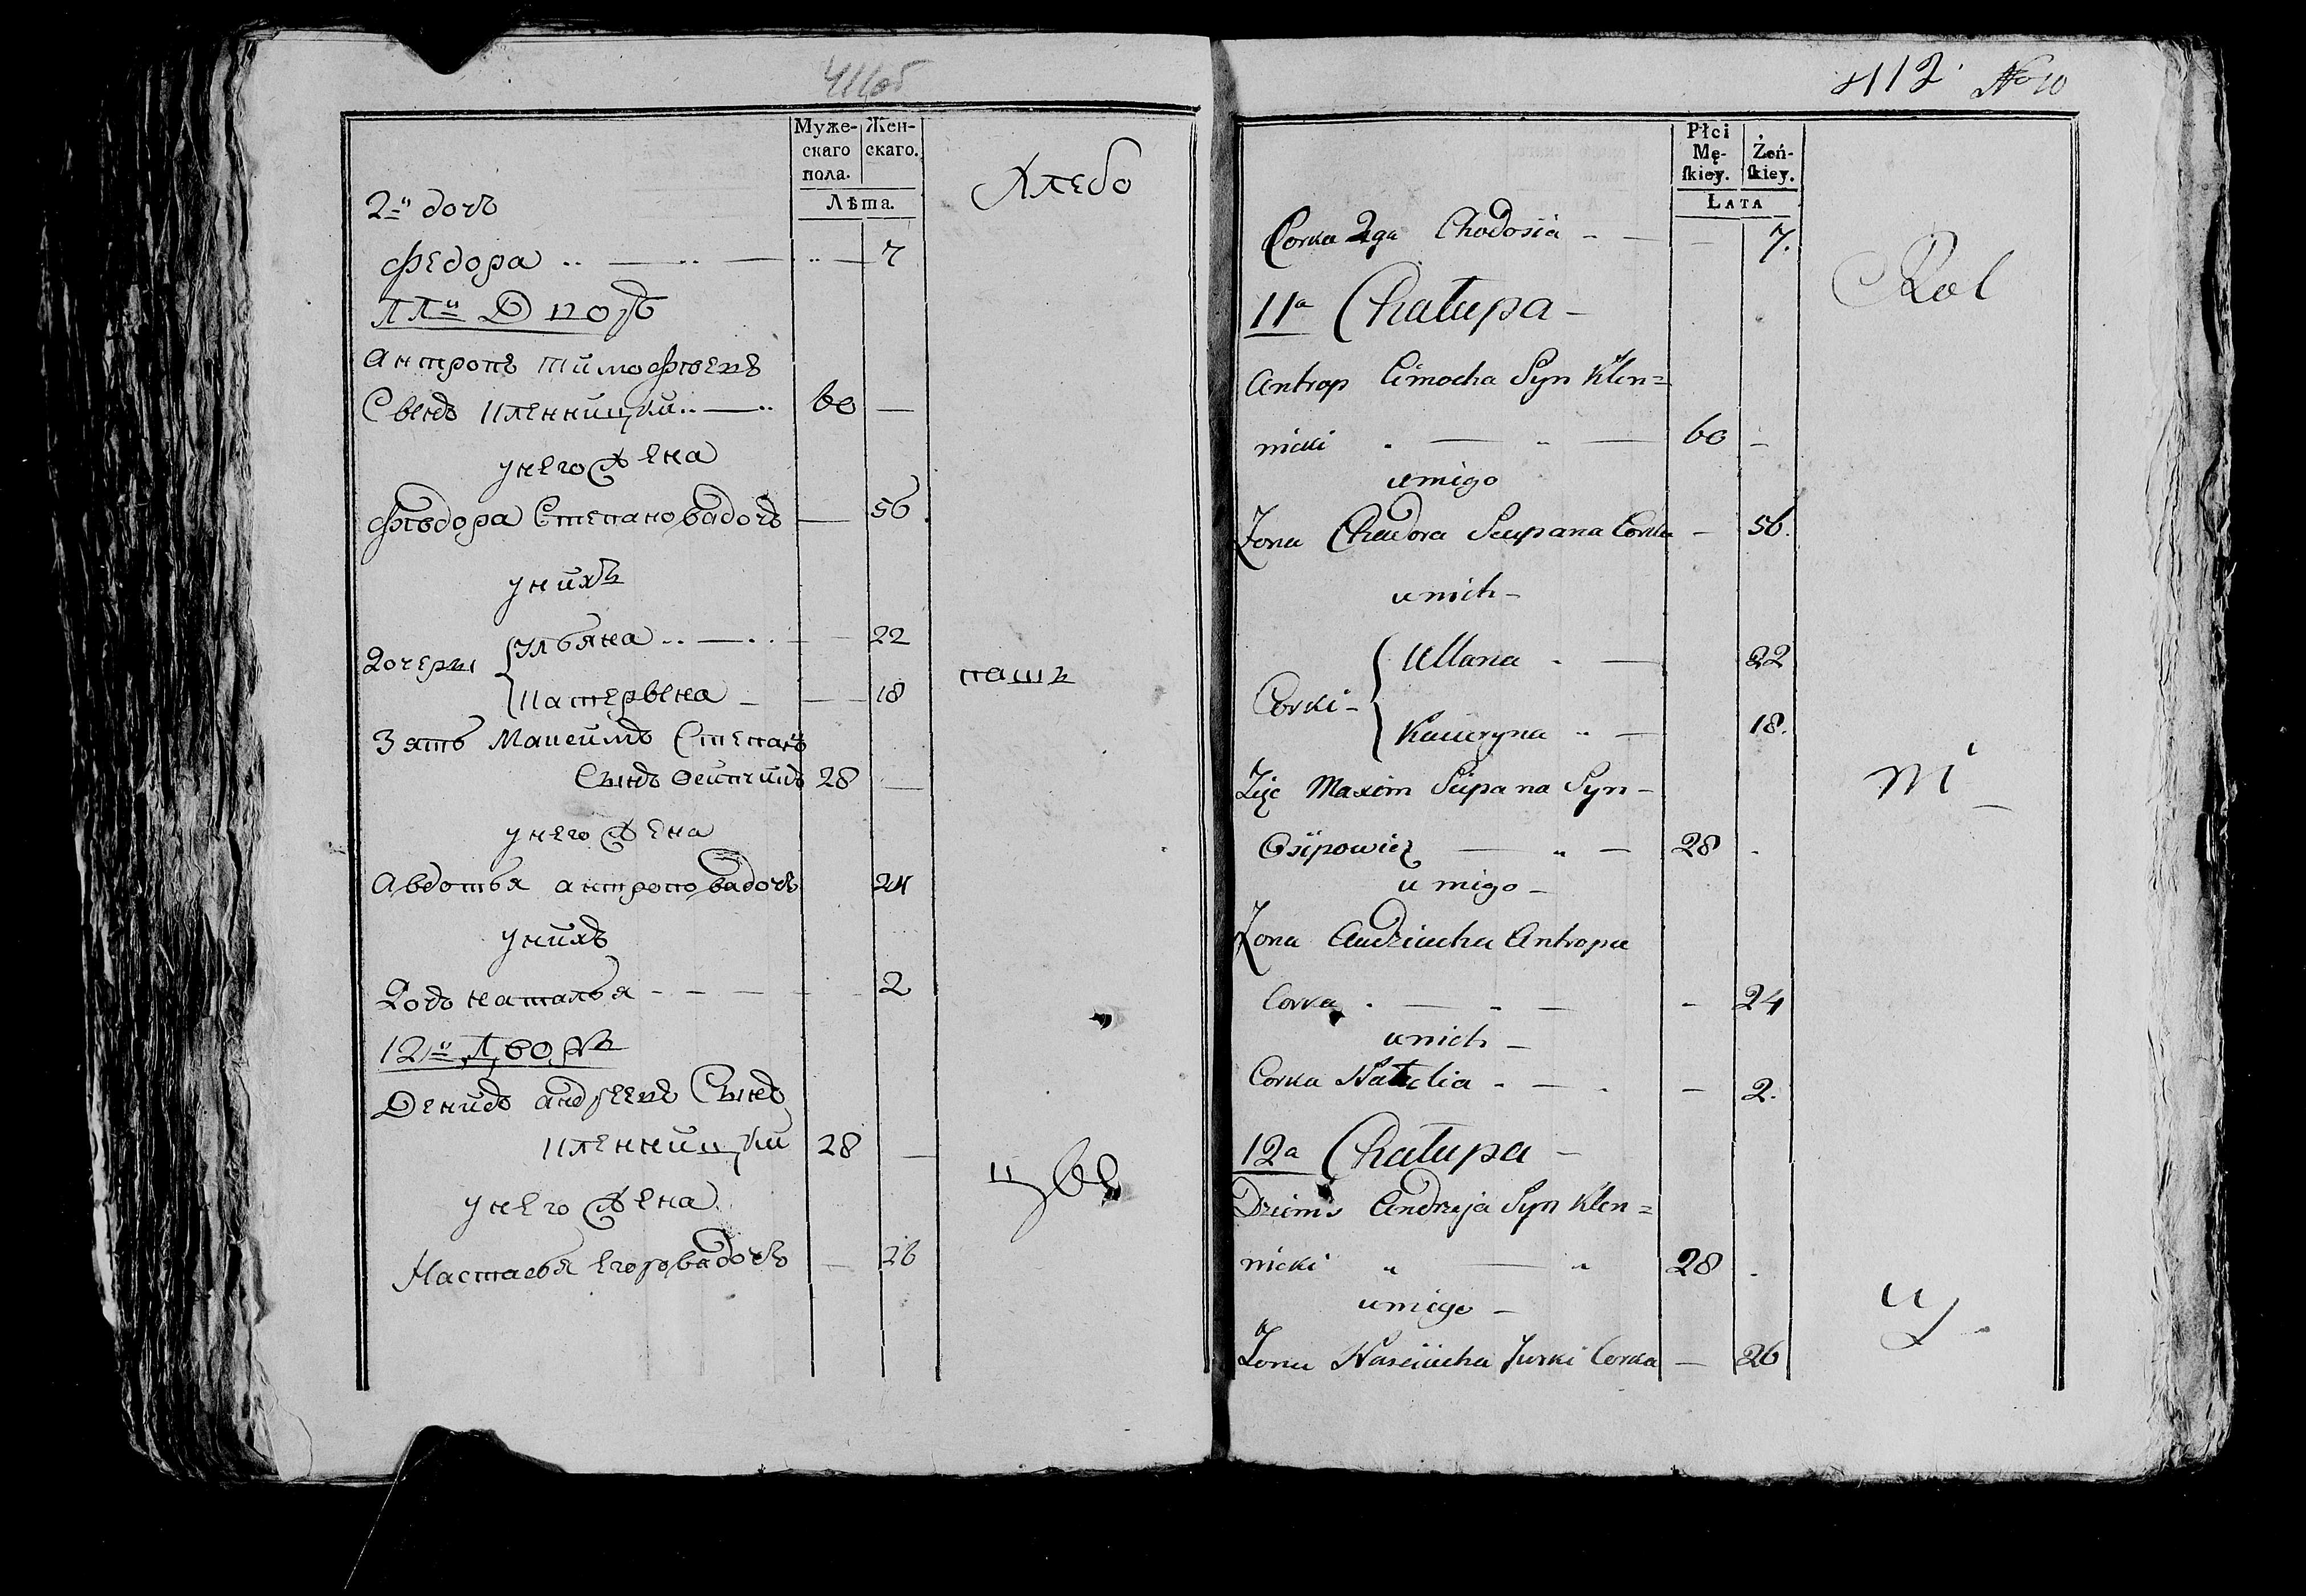 411об
Муже-
скаго
пола.
Жен-
скаго.
Лѣта.
Хлебо
2я дочь
Федора 7
11й Дворъ
Антропъ Тимофеевъ
Сынъ Кленницкий 60
у него жена
Федора Степанова дочь 56
у нихъ
Дочери Ульяна 22
Катерѣна 18
пашъ
Зять Максимъ Степановъ
Сынъ 28
у него жена
Авдотья Антропова дочь 24
у нихъ
Дочь Наталья 2
12й Дворъ
Денисъ Андреевъ Сынъ
Кленницкий 28
у него жена
Настасья Егорова дочь 26
412. No 10
Płci
Mę-
ſkiey.
Żeń-
ſkiey.
LATA
Corka 2ga Chodosia 7.
Rol
11a Chałupa
Antrop Cimocha Syn Klen=
nicki 60
u niego
Żona Chwdora Sciepana Corka 56.
u nich
Corki Ullana 22
Kacieryna 18.
Zięć Maxim Sciepana Syn
Osipowicz 28
ni
u niego
Żona Audziucha Antropa
Corka 24
u nich
Corka Natalia 2.
12a Chałupa
Dzienis Andrzeja Syn Klen=
nicki 28
u niego
Żona Nasciucha Jurki Corka 26